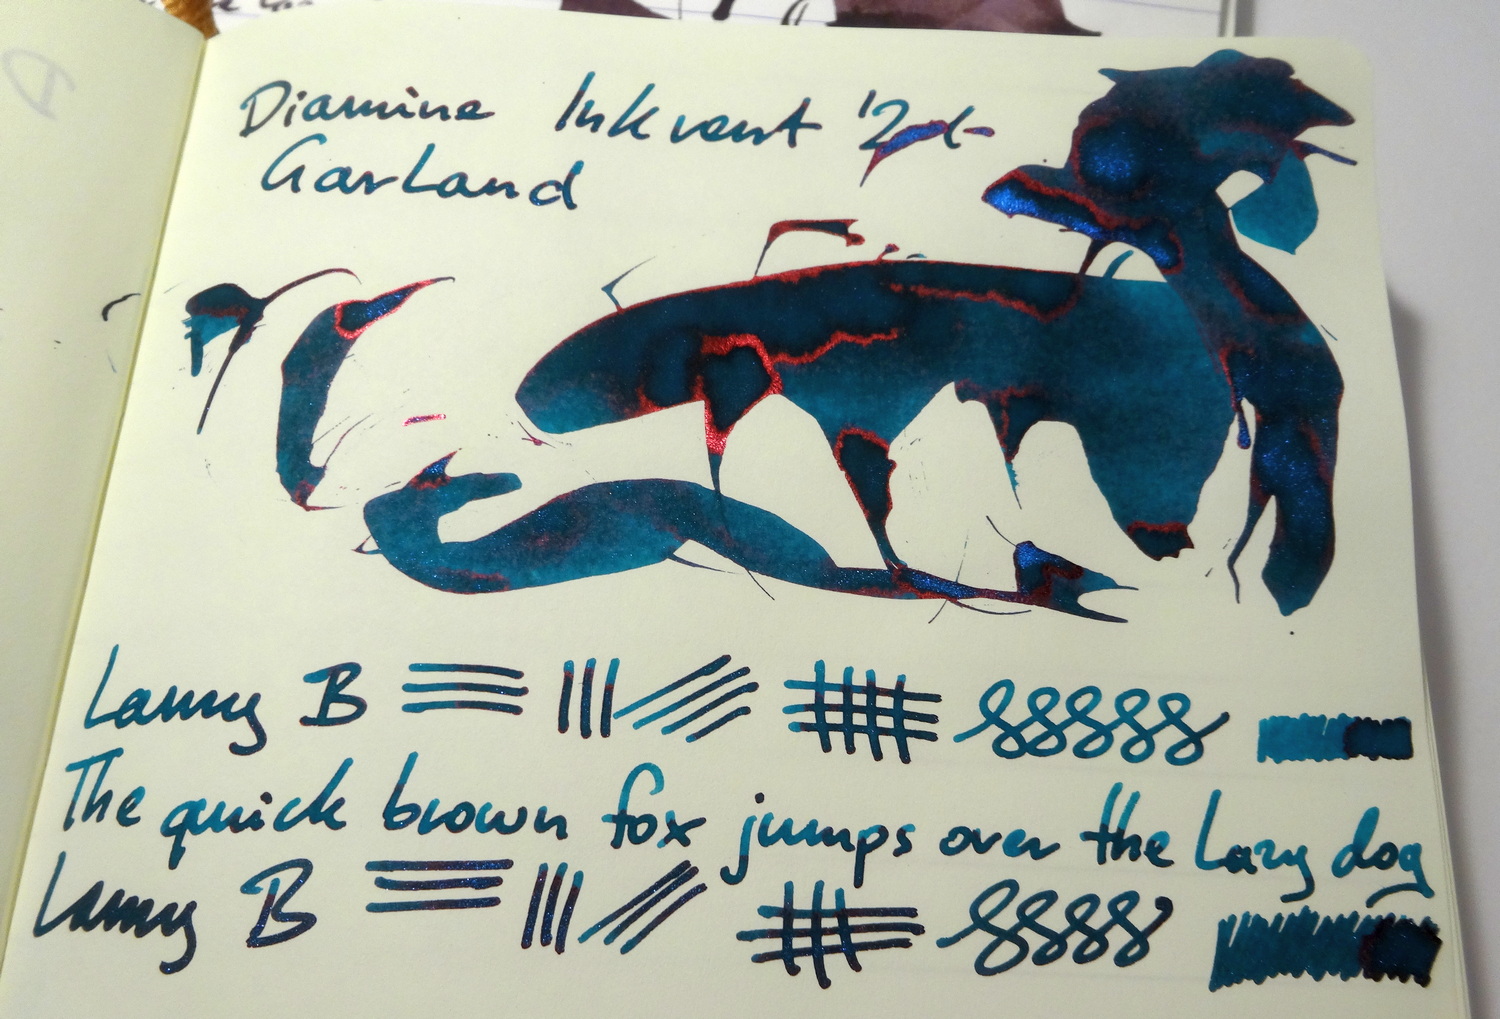 Diamine Inkvent '21
Garland
Lamy B
The quick brown fox jumps over the Lazy dog
Lamy B